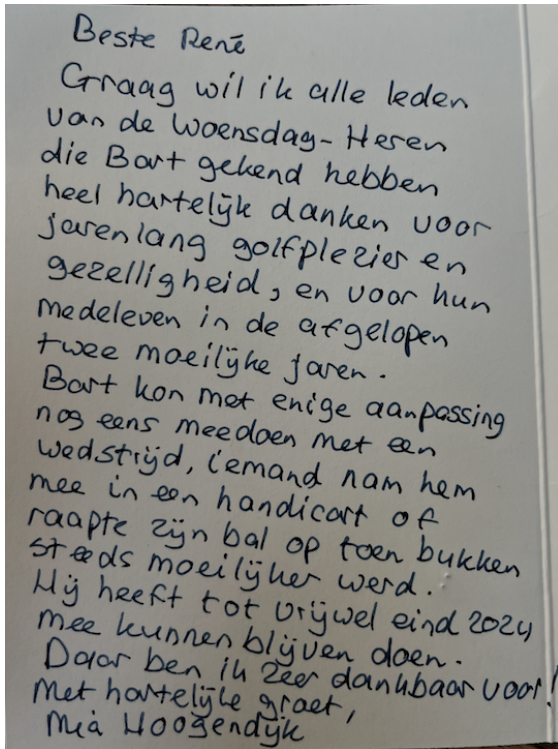 Beste René
Graag wil ik alle leden
van de Woensdag-Heren
die Bart gekend hebben
heel hartelijk danken voor
jarenlang golfplezier en
gezelligheid, en voor hun
medeleven in de afgelopen
twee moeilijke jaren.
Bart kon met enige aanpassing
nog eens meedoen met een
wedstrijd, iemand nam hem
mee in een handicart of
raapte zijn bal op toen bukken
steeds moeilijker werd.
Hij heeft tot vrijwel eind 2024
mee kunnen blijven doen.
Daar ben ik zeer dankbaar voor!
Met hartelijke groet,
Mia Hoogendijk